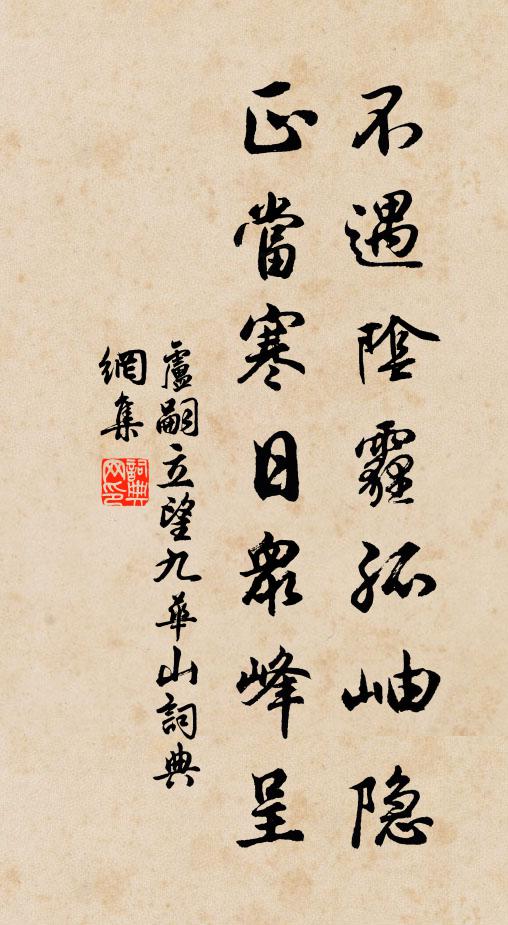 不遇陰霾孤岫隐
正當寒日衆峰呈
盧嗣立望九華山詞典
網集
詞典网印